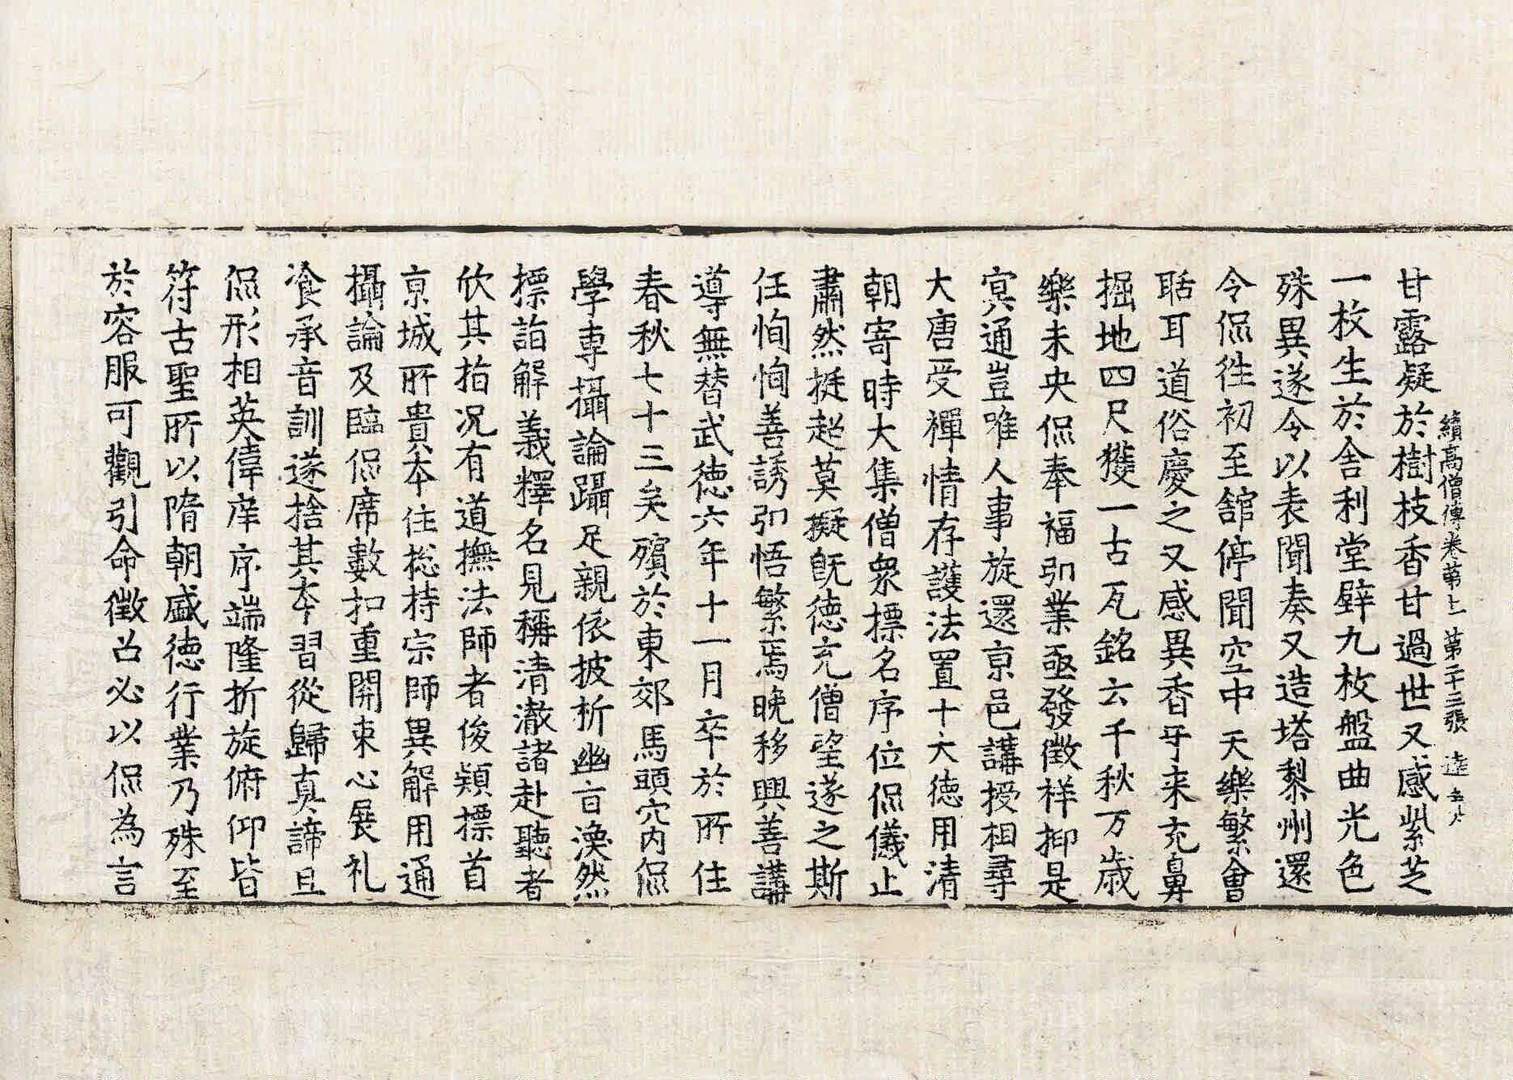 甘露凝於樹枝香甘過世又感紫芝
續高僧傳卷第十一 第二十三張 達 五片
一枚生於舍利堂壁九枚盤曲光色
殊異遂令以表聞奏又造塔黎州還
令侃往初至舘停聞空中天樂繁會
聒耳道俗慶之又感異香互来充鼻
掘地四尺獲一古瓦銘云千秋万歳
樂未央侃奉福弘業亟發徵祥抑是
冥通豈唯人事旋還京邑講授相尋
大唐受禪情存護法置十大徳用清
朝寄時大集僧衆標名序位侃儀止
肅然挺超莫擬旣徳充僧望遂之斯
任恂恂善誘弘悟繁焉晚移興善講
導無替武徳六年十一月卒於所住
春秋七十三矣殯於東郊馬頭穴内侃
學専攝論躡足親依披析幽旨渙然
標詣解義釋名見稱清澈諸赴聽者
欣其指况有道撫法師者俊穎標首
京城所貴本住捴持宗師異解用通
攝論及臨侃席數扣重關束心展礼
飡承音訓遂捨其本習從歸真諦且
侃形相英偉庠序端隆折旋俯仰皆
符古聖所以隋朝盛徳行業乃殊至
於容服可觀引命徵召必以侃為言